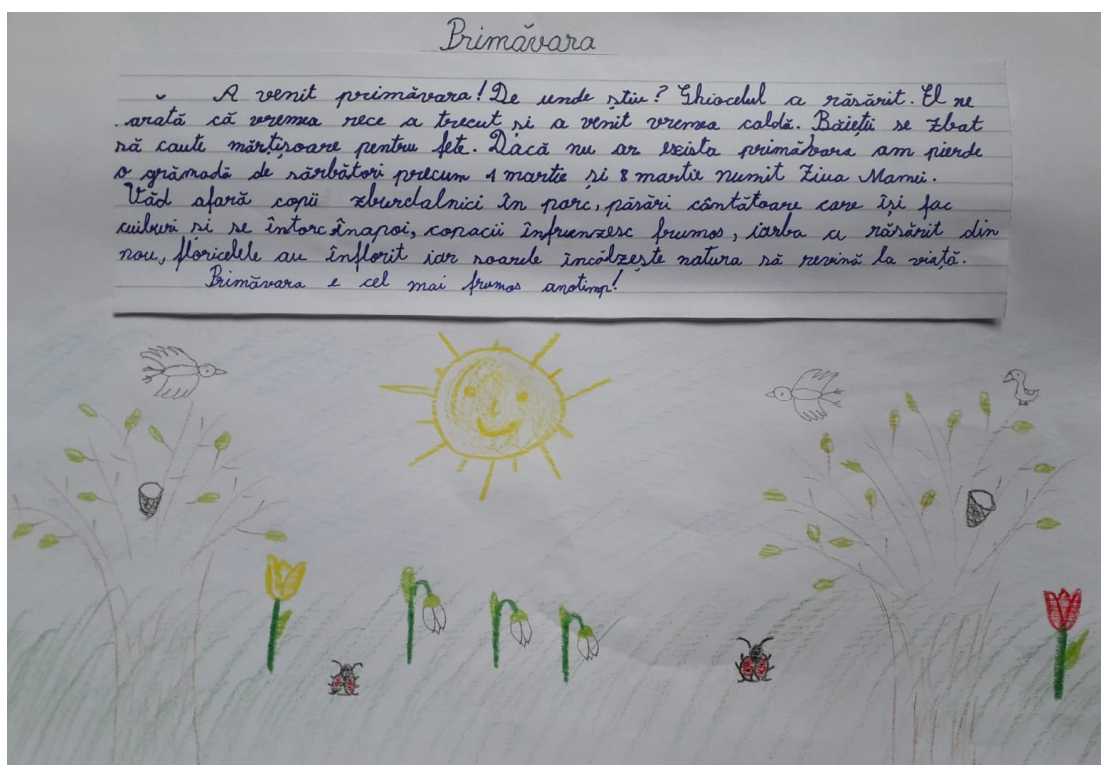 Primăvara
A venit primăvara! De unde știu? Ghiocelul a răsărit. El ne
arată că vremea rece a trecut și a venit vremea caldă. Băieții se zbat
să caute mărțișoare pentru fete. Dacă nu ar exista primăvara am pierde
o grămadă de sărbători precum 1 martie și 8 martie numit Ziua Mamei.
Văd afară copii zburdalnici în parc, păsări cântătoare care își fac
cuiburi și se întorc înapoi, copacii înfrunzesc frumos, iarba a răsărit din
nou, floricelele au înflorit iar soarele încălzește natura să revină la viață.
Primăvara e cel mai frumos anotimp!